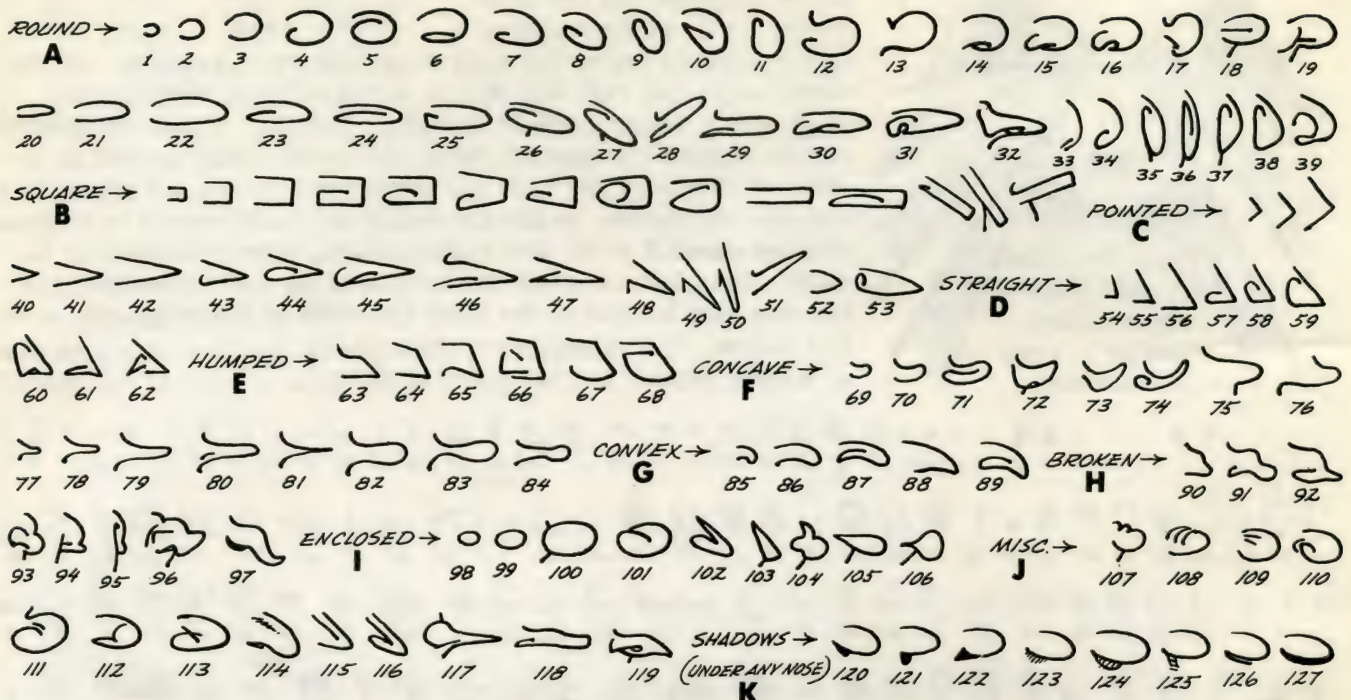 ROUND →
A
1 2 3 4 5 6 7 8 9 10 11 12 13 14 15 16 17 18 19
20 21 22 23 24 25 26 27 28 29 30 31 32 33 34 35 36 37 38 39
SQUARE →
B
POINTED →
C
40 41 42 43 44 45 46 47 48 49 50 51 52 53
STRAIGHT →
D
54 55 56 57 58 59
60 61 62
HUMPED →
E
63 64 65 66 67 68
CONCAVE →
F
69 70 71 72 73 74 75 76
77 78 79 80 81 82 83 84
CONVEX →
G
85 86 87 88 89
BROKEN →
H
90 91 92
93 94 95 96 97
ENCLOSED →
I
98 99 100 101 102 103 104 105 106
MISC. →
J
107 108 109 110
111 112 113 114 115 116 117 118 119
SHADOWS →
(UNDER ANY NOSE)
K
120 121 122 123 124 125 126 127